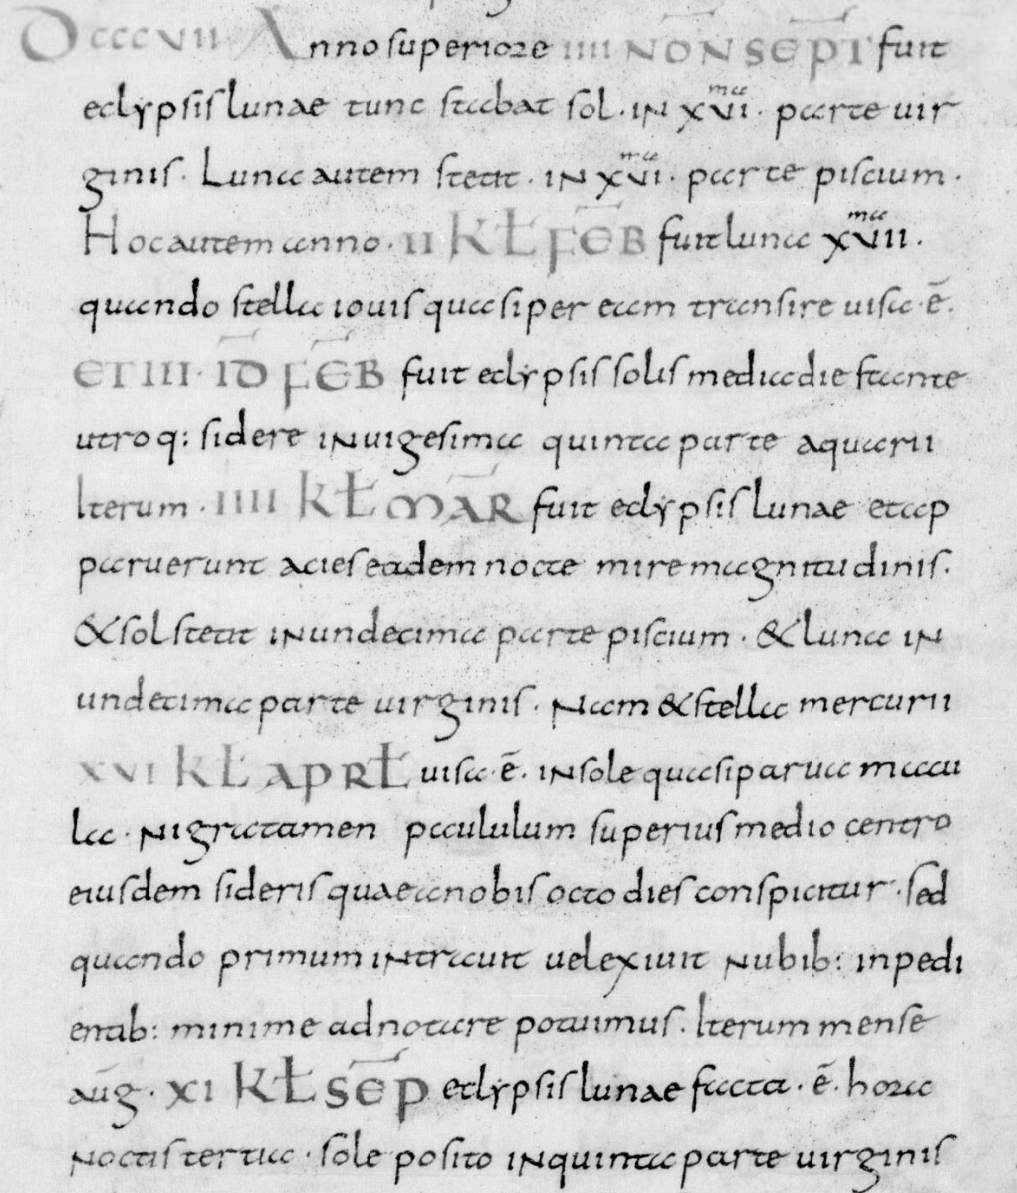 DCCCVII Anno superiore IIII NON̄ SEPT̄ fuit
eclypsis lunae tunc stabat sol · in xvi^ma · parte uir
ginis · Luna autem stetit · in xvi^ma · parte piscium ·
Hoc autem anno · II KŁ FEB̄ fuit luna xvii^ma ·
quando stella iouis quasi per eam transire uisa · ē ·
ET III · ID̄ FEB̄ fuit eclypsis solis media die stante
utroq: sidere in uigesima quinta parte aquarii
Iterum · IIII KŁ MAR̄ fuit eclypsis lunae et ap
paruerunt acies eadem nocte mire magnitudinis ·
& sol stetit in undecima parte piscium · & luna in
undecima parte uirginis · Nam & stella mercurii
XVI KŁ APRŁ uisa · ē · in sole quasi parua macu
la · nigra tamen paululum superius medio centro
eiusdem sideris quae a nobis octo dies conspicitur · sed
quando primum intrauit uel exiuit nubib: inpedi
entib: minime adnotare potuimus · Iterum mense
aūg · XI KŁ SEP̄ eclypsis lunae facta · ē · hora
noctis tertia · sole posito in quinta parte uirginis